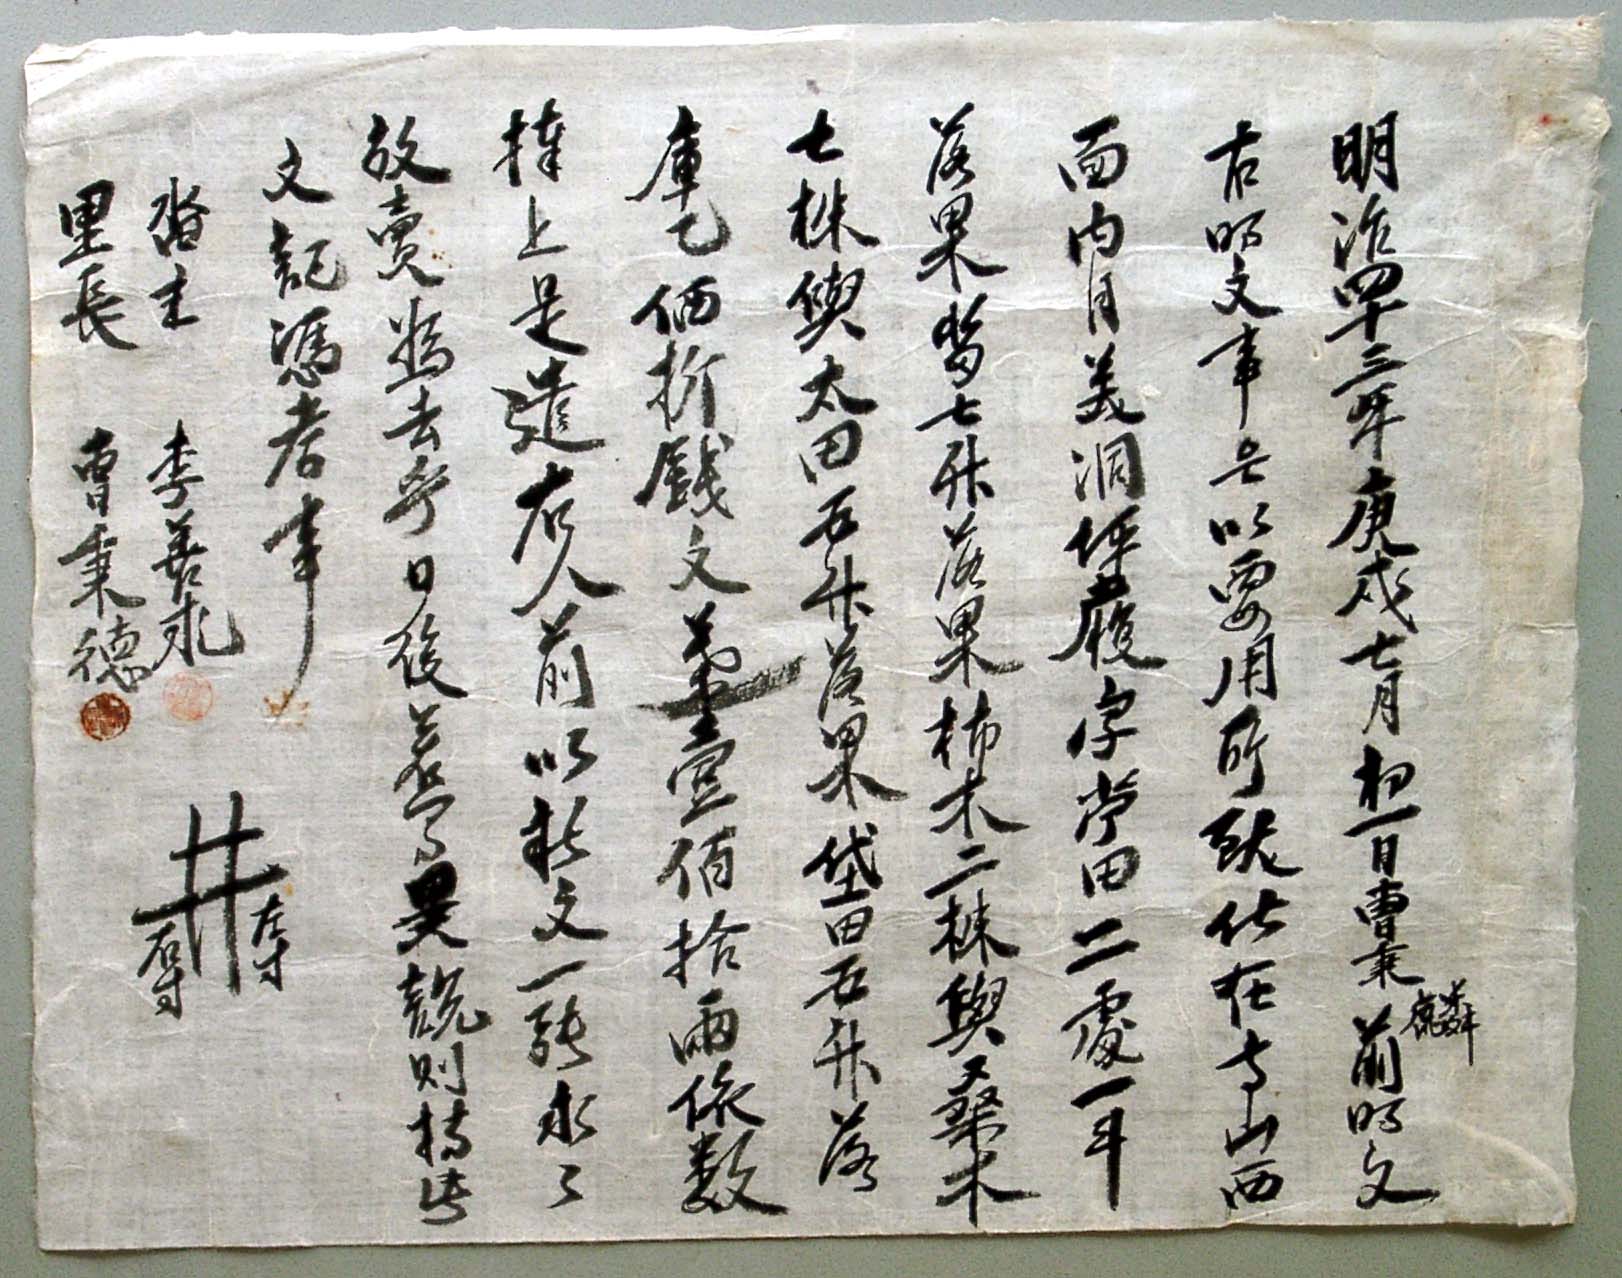 明治四十三年庚戌七月初一日曺秉麟前明文
右明文事段以要用所致伏在古山西
面內月美洞伏履字畓田二處一斗
落果畓七升落果柿木二株與桑木
七株與太田五升落果垈田五升落
庫乙価折錢文壹佰拾兩依数
捧上是遣右人前以新文一張永々
放賣為去乎日後若有異說則持此
文記憑考事
畓主 李善永 左寸 右寸
里長 曺秉德